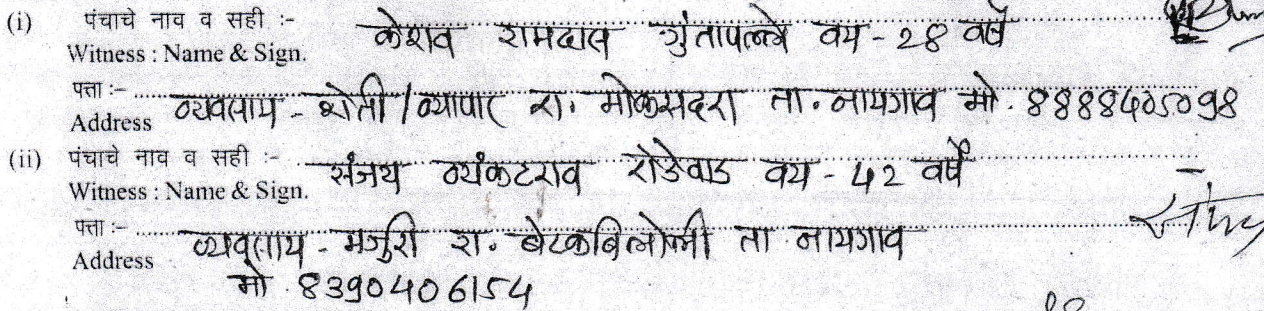 (i) पंचाचे नाव व सही :- केशव रामदास गुंतापल्ले वय - 28 वर्षे
Witness : Name & Sign.
पत्ता :- व्यवसाय - शेती / व्यापार रा. मोकासदरा ता. नायगाव मो. 8888405098
Address
(ii) पंचाचे नाव व सही :- संजय व्यंकटराव रोडेवाड वय - 42 वर्षे
Witness : Name & Sign.
पत्ता :- व्यवसाय - मजुरी रा. बेटकबिलोली ता नायगाव
Address
मो. 8390406154